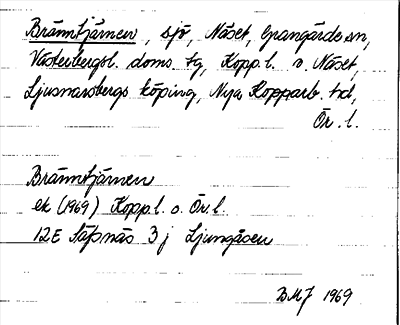 Bränntjärnen, sjö, Näset, Grangärde sn,
Västerbergsl. doms. tg, Kopp. l. o. Näset,
Ljusnarsbergs köping, Nya Kopparb. hd,
Ör. l.
Bränntjärnen
ek (1969) Kopp. l. o. Ör. l.
12E Säfsnäs 3 j Ljungåsen
BMJ 1969